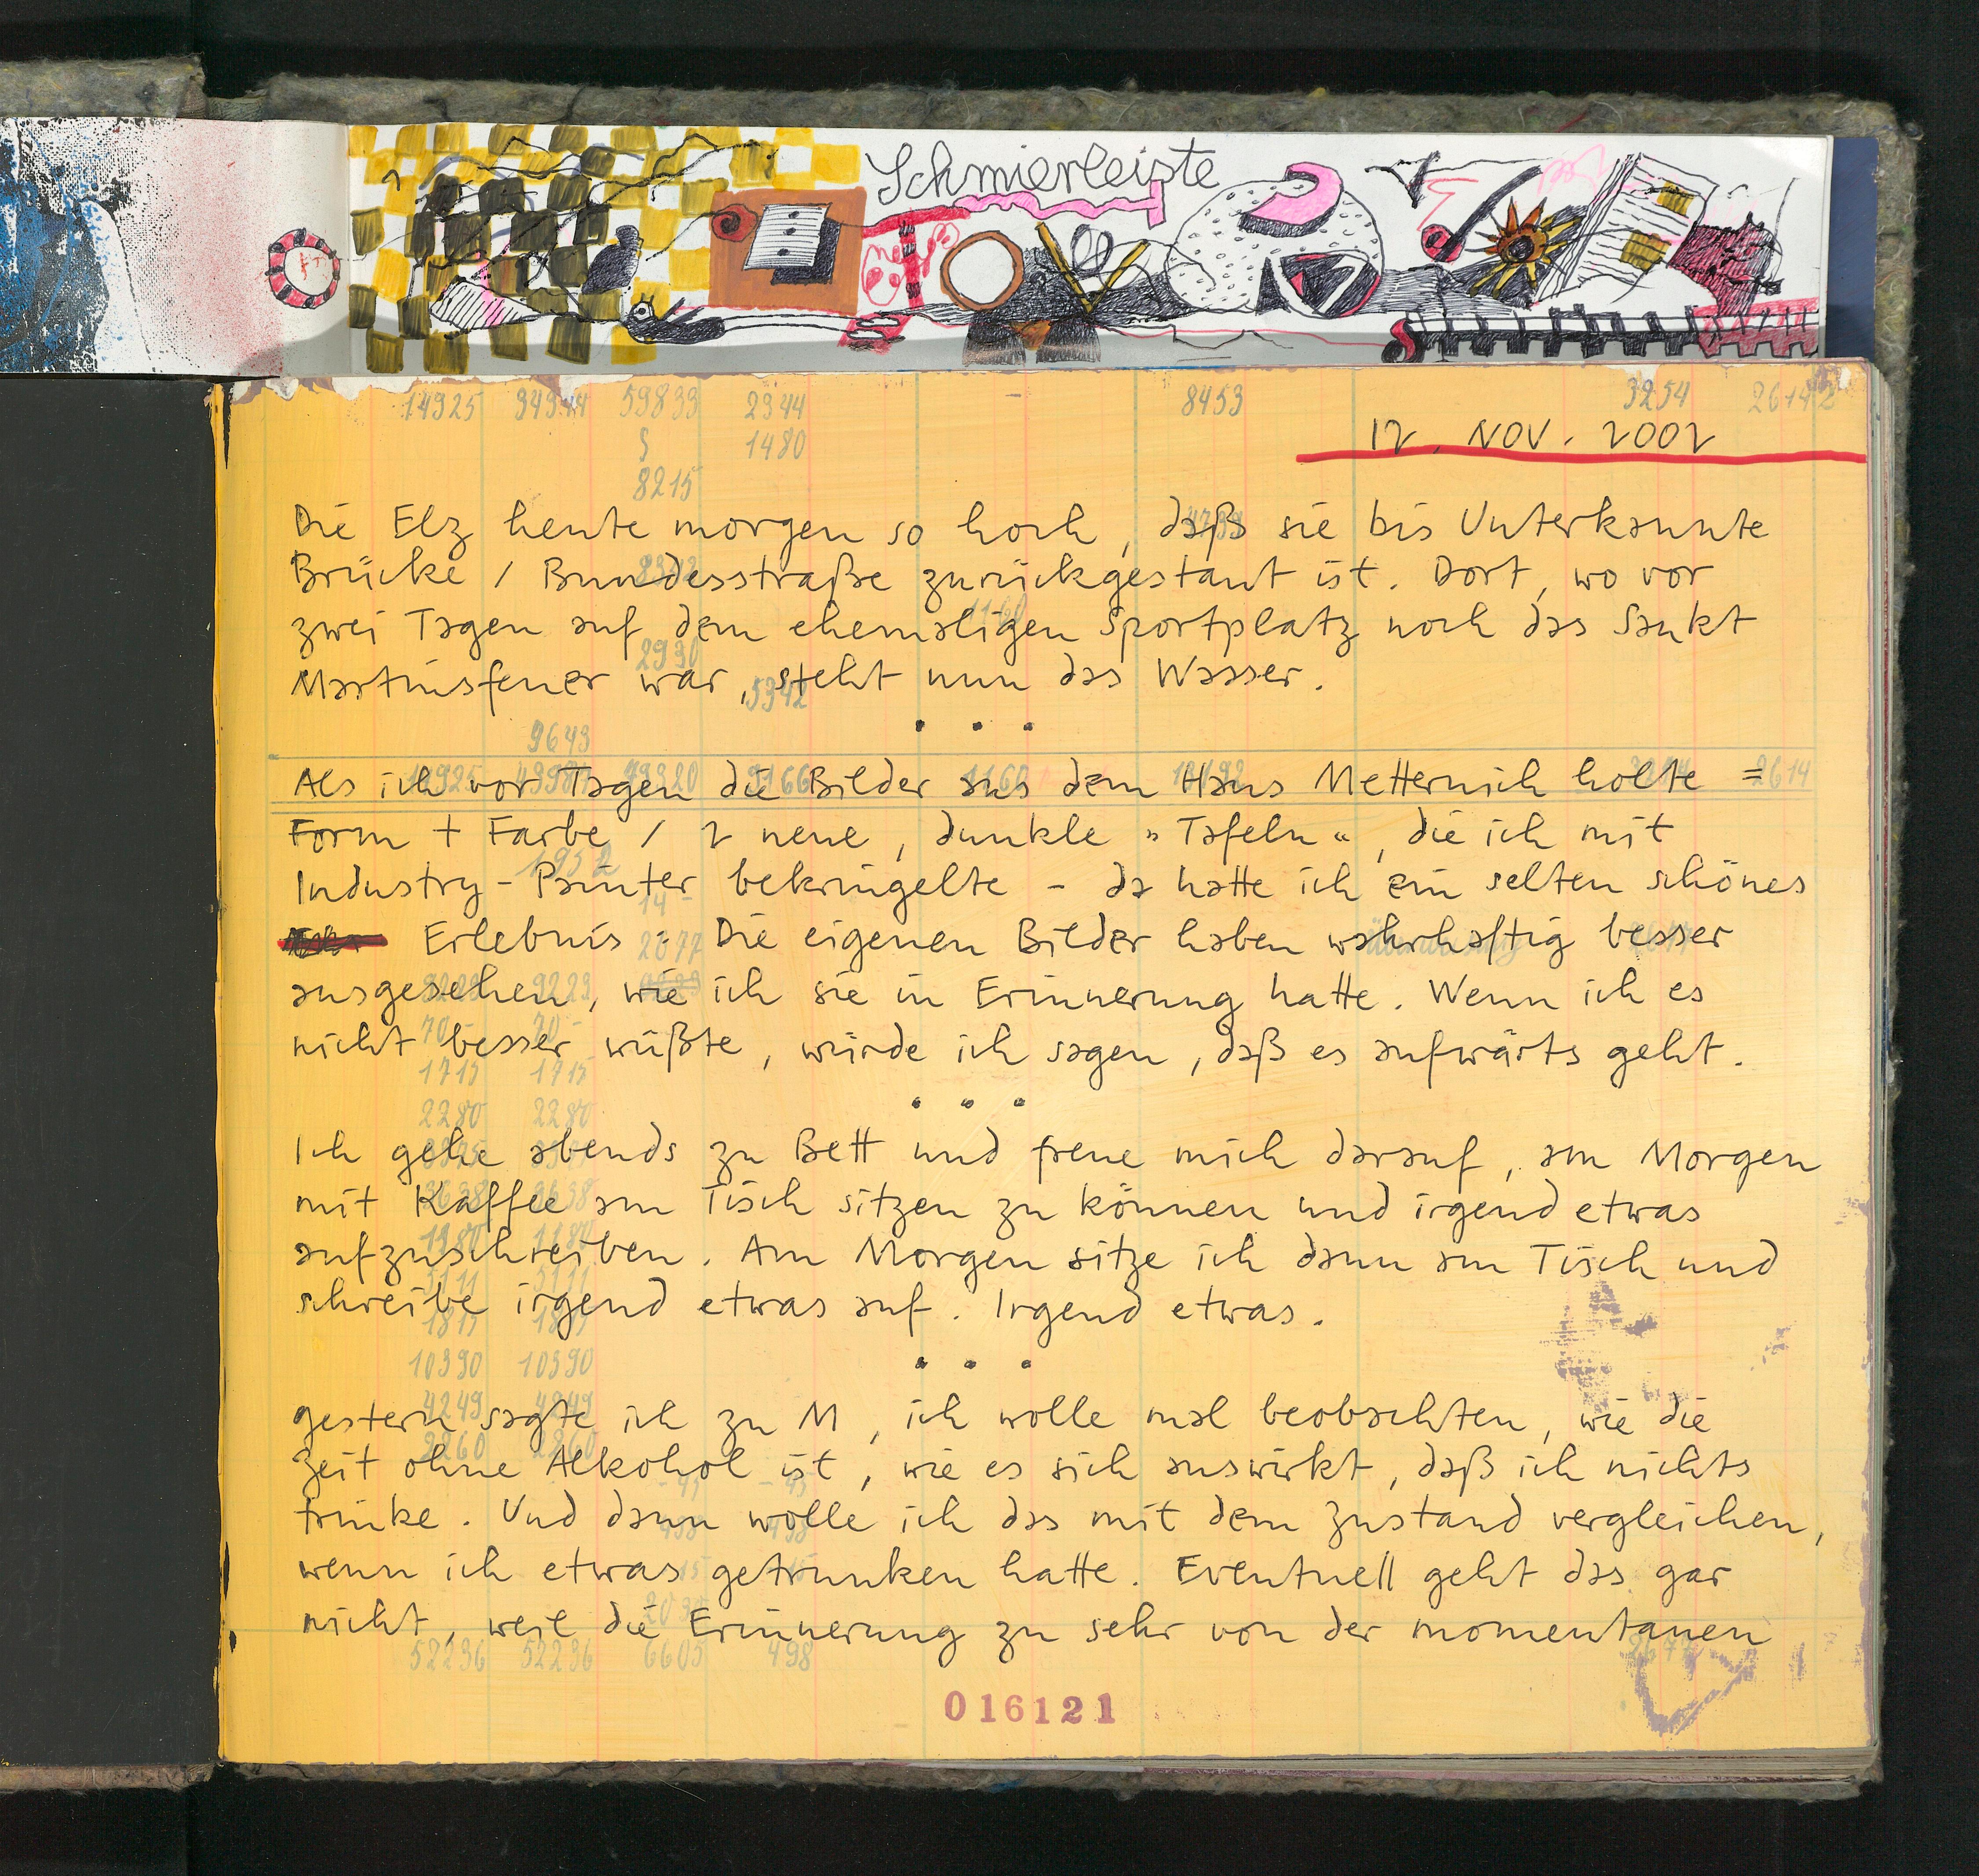 Schmierleiste
14925 34944 59833 2944 - 8453 3254 26142
5 1480
8215
12. NOV. 2002
Die Elz heute morgen so hoch, daß sie bis Unterkannte
Brücke / Bundesstraße zurückgestaut ist. Dort, wo vor
zwei Tagen auf dem ehemaligen Sportplatz noch das Sankt
2930
Martinsfeuer war, steht nun das Wasser.
5342
• • •
9643
Als ich vor Tagen die Bilder aus dem Haus Metternich holte =
Form + Farbe / 2 neue, dunkle "Tafeln", die ich mit
1952
Industry-Painter bekringelte - da hatte ich ein selten schönes
14-
Erlebnis: Die eigenen Bilder haben wahrhaftig besser
2677
ausgesehen, wie ich sie in Erinnerung hatte. Wenn ich es
70- 70-
nicht besser wüßte, würde ich sagen, daß es aufwärts geht.
1715 1715
2280 2280
• • •
Ich gehe abends zu Bett und freue mich darauf, am Morgen
mit Kaffee am Tisch sitzen zu können und irgend etwas
aufzuschreiben. Am Morgen sitze ich dann am Tisch und
schreibe irgend etwas auf. Irgend etwas.
10390 10390
• • •
4249 4249
gestern sagte ich zu M, ich wolle mal beobachten, wie die
2260 2260
Zeit ohne Alkohol ist, wie es sich auswirkt, daß ich nichts
trinke. Und dann wolle ich das mit dem Zustand vergleichen,
wenn ich etwas getrunken hatte. Eventuell geht das gar
nicht, weil die Erinnerung zu sehr von der momentanen
52236 52236 6605 498 2677
016121